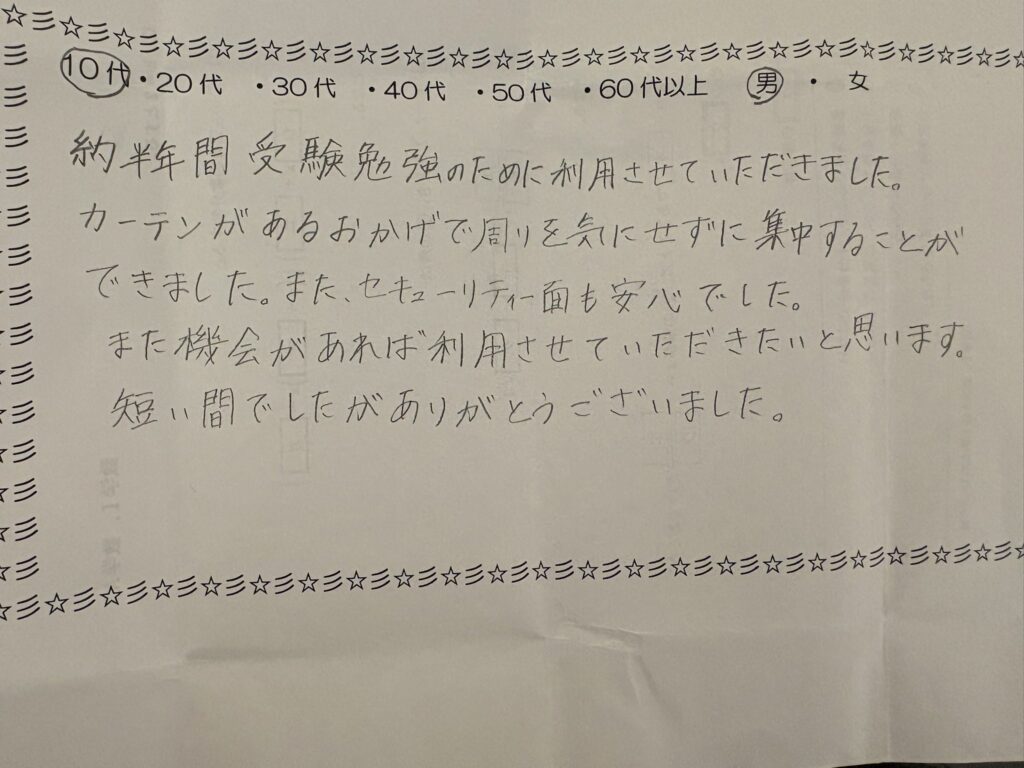 10代・20代・30代・40代・50代・60代以上 男・女
約半年間受験勉強のために利用させていただきました。
カーテンがあるおかげで周りを気にせずに集中することが
できました。また、セキューリティー面も安心でした。
また機会があれば利用させていただきたいと思います。
短い間でしたがありがとうございました。